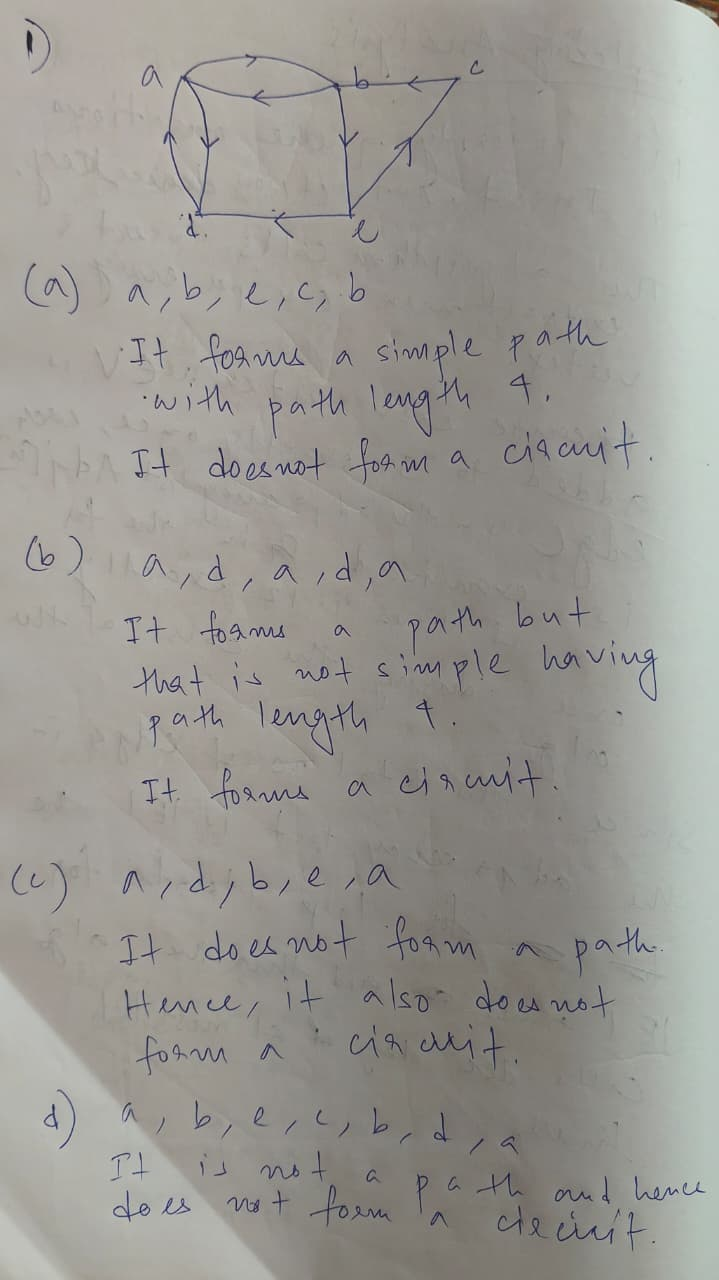 1)
a b c
d. e
(a) a, b, e, c, b
It forms a simple path
with path length 4.
It does not form a circuit.
(b) a, d, a, d, a
It forms a path but
that is not simple having
path length 4.
It forms a circuit.
(c) a, d, b, e, a
It does not form a path.
Hence, it also does not
form a circuit.
d) a, b, e, c, b, d, a
It is not a path and hence
does not form a circuit.